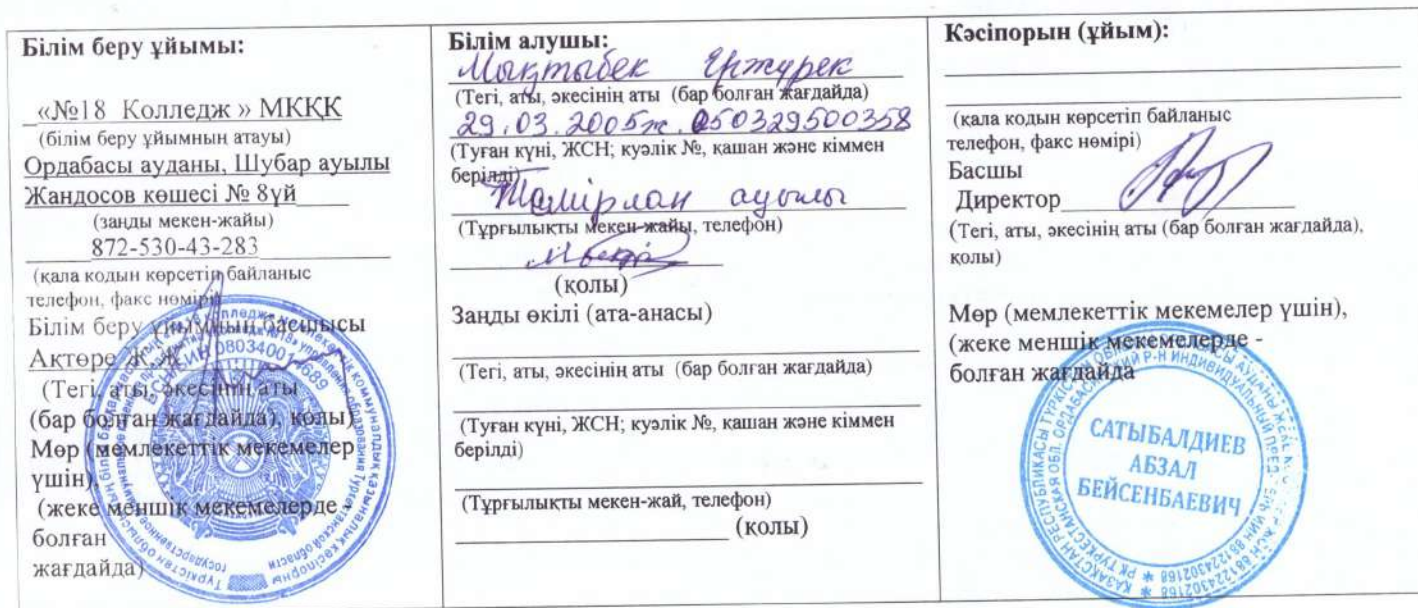 Білім беру ұйымы:
«№18 Колледж » МКҚК
(білім беру ұйымның атауы)
Ордабасы ауданы, Шубар ауылы
Жандосов көшесі № 8үй
(заңды мекен-жайы)
872-530-43-283
(қала кодын көрсетіп байланыс
телефон, факс нөмірі)
Білім беру ұйымның басшысы
Ақтөре Ж.Ж
(Тегі, аты, әкесінің аты
(бар болған жағдайда), қолы)
Мөр (мемлекеттік мекемелер
үшін),
(жеке меншік мекемелерде -
болған
жағдайда)
Білім алушы:
Мықтыбек Ержүрек
(Тегі, аты, әкесінің аты (бар болған жағдайда)
29.03.2005ж. 050329500358
(Туған күні, ЖСН; куәлік №, қашан және кіммен
берілді)
Темірлан ауылы
(Тұрғылықты мекен-жайы, телефон)
(қолы)
Заңды өкілі (ата-анасы)
(Тегі, аты, әкесінің аты (бар болған жағдайда)
(Туған күні, ЖСН; куәлік №, қашан және кіммен
берілді)
(Тұрғылықты мекен-жай, телефон)
(қолы)
Кәсіпорын (ұйым):
(қала кодын көрсетіп байланыс
телефон, факс нөмірі)
Басшы
Директор
(Тегі, аты, әкесінің аты (бар болған жағдайда),
қолы)
Мөр (мемлекеттік мекемелер үшін),
(жеке меншік мекемелерде -
болған жағдайда
САТЫБАЛДИЕВ
АБЗАЛ
БЕЙСЕНБАЕВИЧ